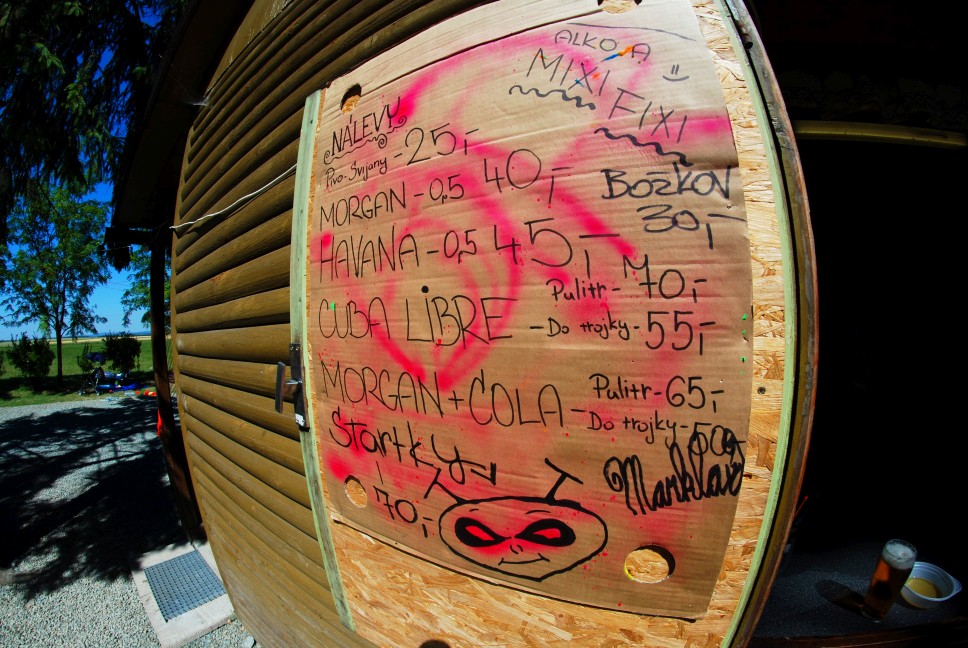 ALKO A
MIXI
FIXI
NÁLEVY
Pivo-Svijany - 25,-
MORGAN - 0,5 40,-
BOŽKOV
30,-
HAVANA - 0,5 45,-
CUBA LIBRE - Pulitr - 70,-
- Do trojky - 55,-
MORGAN + COLA - Pulitr - 65,-
Do trojky - 50,-
Startky
70,-